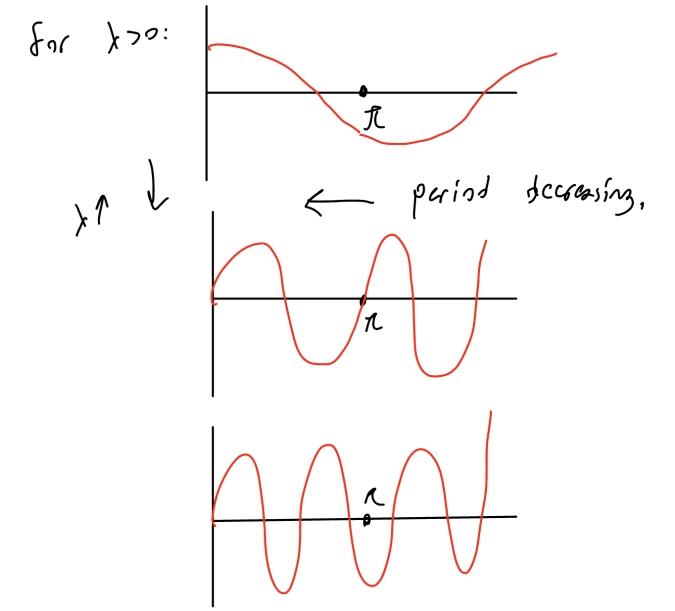 for λ>0:
π
λ↑ ↓ ← period decreasing.
π
π